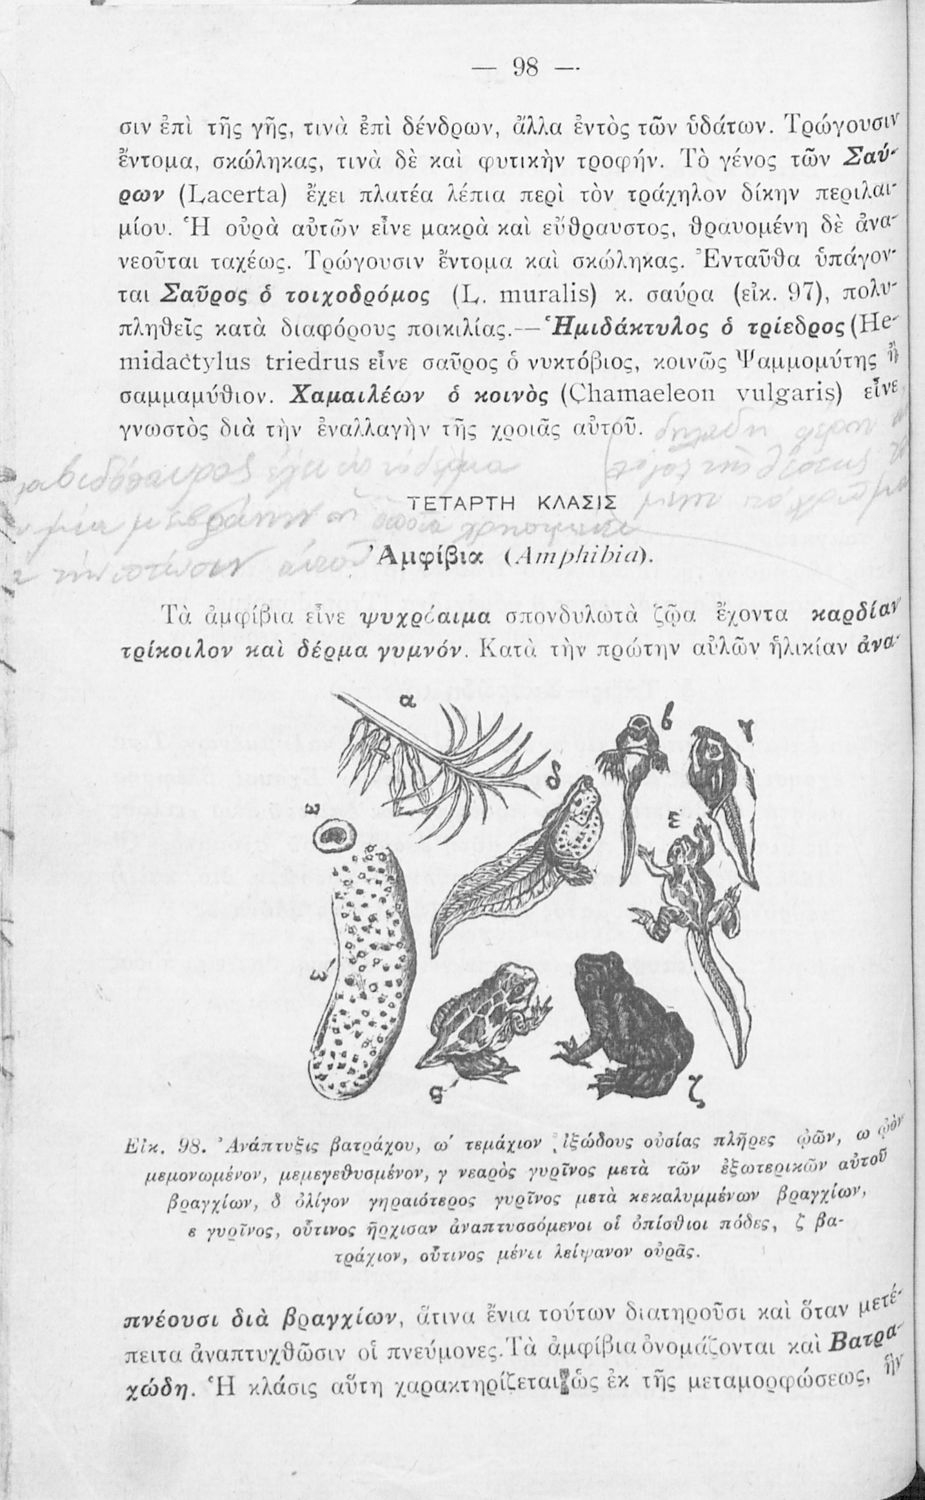 — 98 —
σιν ἐπὶ τῆς γῆς, τινὰ ἐπὶ δένδρων, ἄλλα ἐντὸς τῶν ὑδάτων. Τρώγουσιν
ἔντομα, σκώληκας, τινὰ δὲ καὶ φυτικὴν τροφήν. Τὸ γένος τῶν Σαύ-
ρων (Lacerta) ἔχει πλατέα λέπια περὶ τὸν τράχηλον δίκην περιλαι-
μίου. Ἡ οὐρὰ αὐτῶν εἶνε μακρὰ καὶ εὔθραυστος, θραυομένη δὲ ἀνα-
νεοῦται ταχέως. Τρώγουσιν ἔντομα καὶ σκώληκας. Ἐνταῦθα ὑπάγον-
ται Σαῦρος ὁ τοιχοδρόμος (L. muralis) κ. σαύρα (εἰκ. 97), πολυ-
πληθεῖς κατὰ διαφόρους ποικιλίας.—Ἡμιδάκτυλος ὁ τρίεδρος (He-
midactylus triedrus εἶνε σαῦρος ὁ νυκτόβιος, κοινῶς Ψαμμομύτης ἢ
σαμμαμύθιον. Χαμαιλέων ὁ κοινὸς (Chamaeleon vulgaris) εἶνε
γνωστὸς διὰ τὴν ἐναλλαγὴν τῆς χροιᾶς αὐτοῦ.
δηλαδη
ΤΕΤΑΡΤΗ ΚΛΑΣΙΣ
Ἀμφίβια (Amphibia).
Τὰ ἀμφίβια εἶνε ψυχρόαιμα σπονδυλωτὰ ζῷα ἔχοντα καρδίαν
τρίκοιλον καὶ δέρμα γυμνόν. Κατὰ τὴν πρώτην αὐλῶν ἡλικίαν ἀνα-
α
β
γ
δ
ω
ε
ω
ς
ζ
Εἰκ. 98. Ἀνάπτυξις βατράχου, ω' τεμάχιον ἰξώδους οὐσίας πλῆρες ᾠῶν, ω ᾠὸν
μεμονωμένον, μεμεγεθυσμένον, γ νεαρὸς γυρῖνος μετὰ τῶν ἐξωτερικῶν αὐτοῦ
βραγχίων, δ ὀλίγον γηραιότερος γυρῖνος μετὰ κεκαλυμμένων βραγχίων,
ε γυρῖνος, οὗτινος ἤρχισαν ἀναπτυσσόμενοι οἱ ὀπίσθιοι πόδες, ζ βα-
τράχιον, οὗτινος μένει λείψανον οὐρᾶς.
πνέουσι διὰ βραγχίων, ἅτινα ἔνια τούτων διατηροῦσι καὶ ὅταν μετέ-
πειτα ἀναπτυχθῶσιν οἱ πνεύμονες. Τὰ ἀμφίβια ὀνομάζονται καὶ Βατρα-
χώδη. Ἡ κλάσις αὕτη χαρακτηρίζεται ὡς ἐκ τῆς μεταμορφώσεως, ἣν